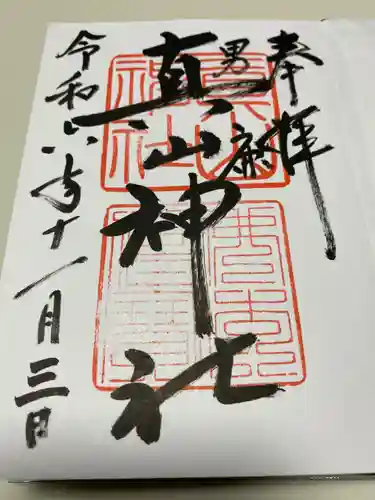 奉拝
男鹿
真山神社
令和六年十一月三日
真山神社